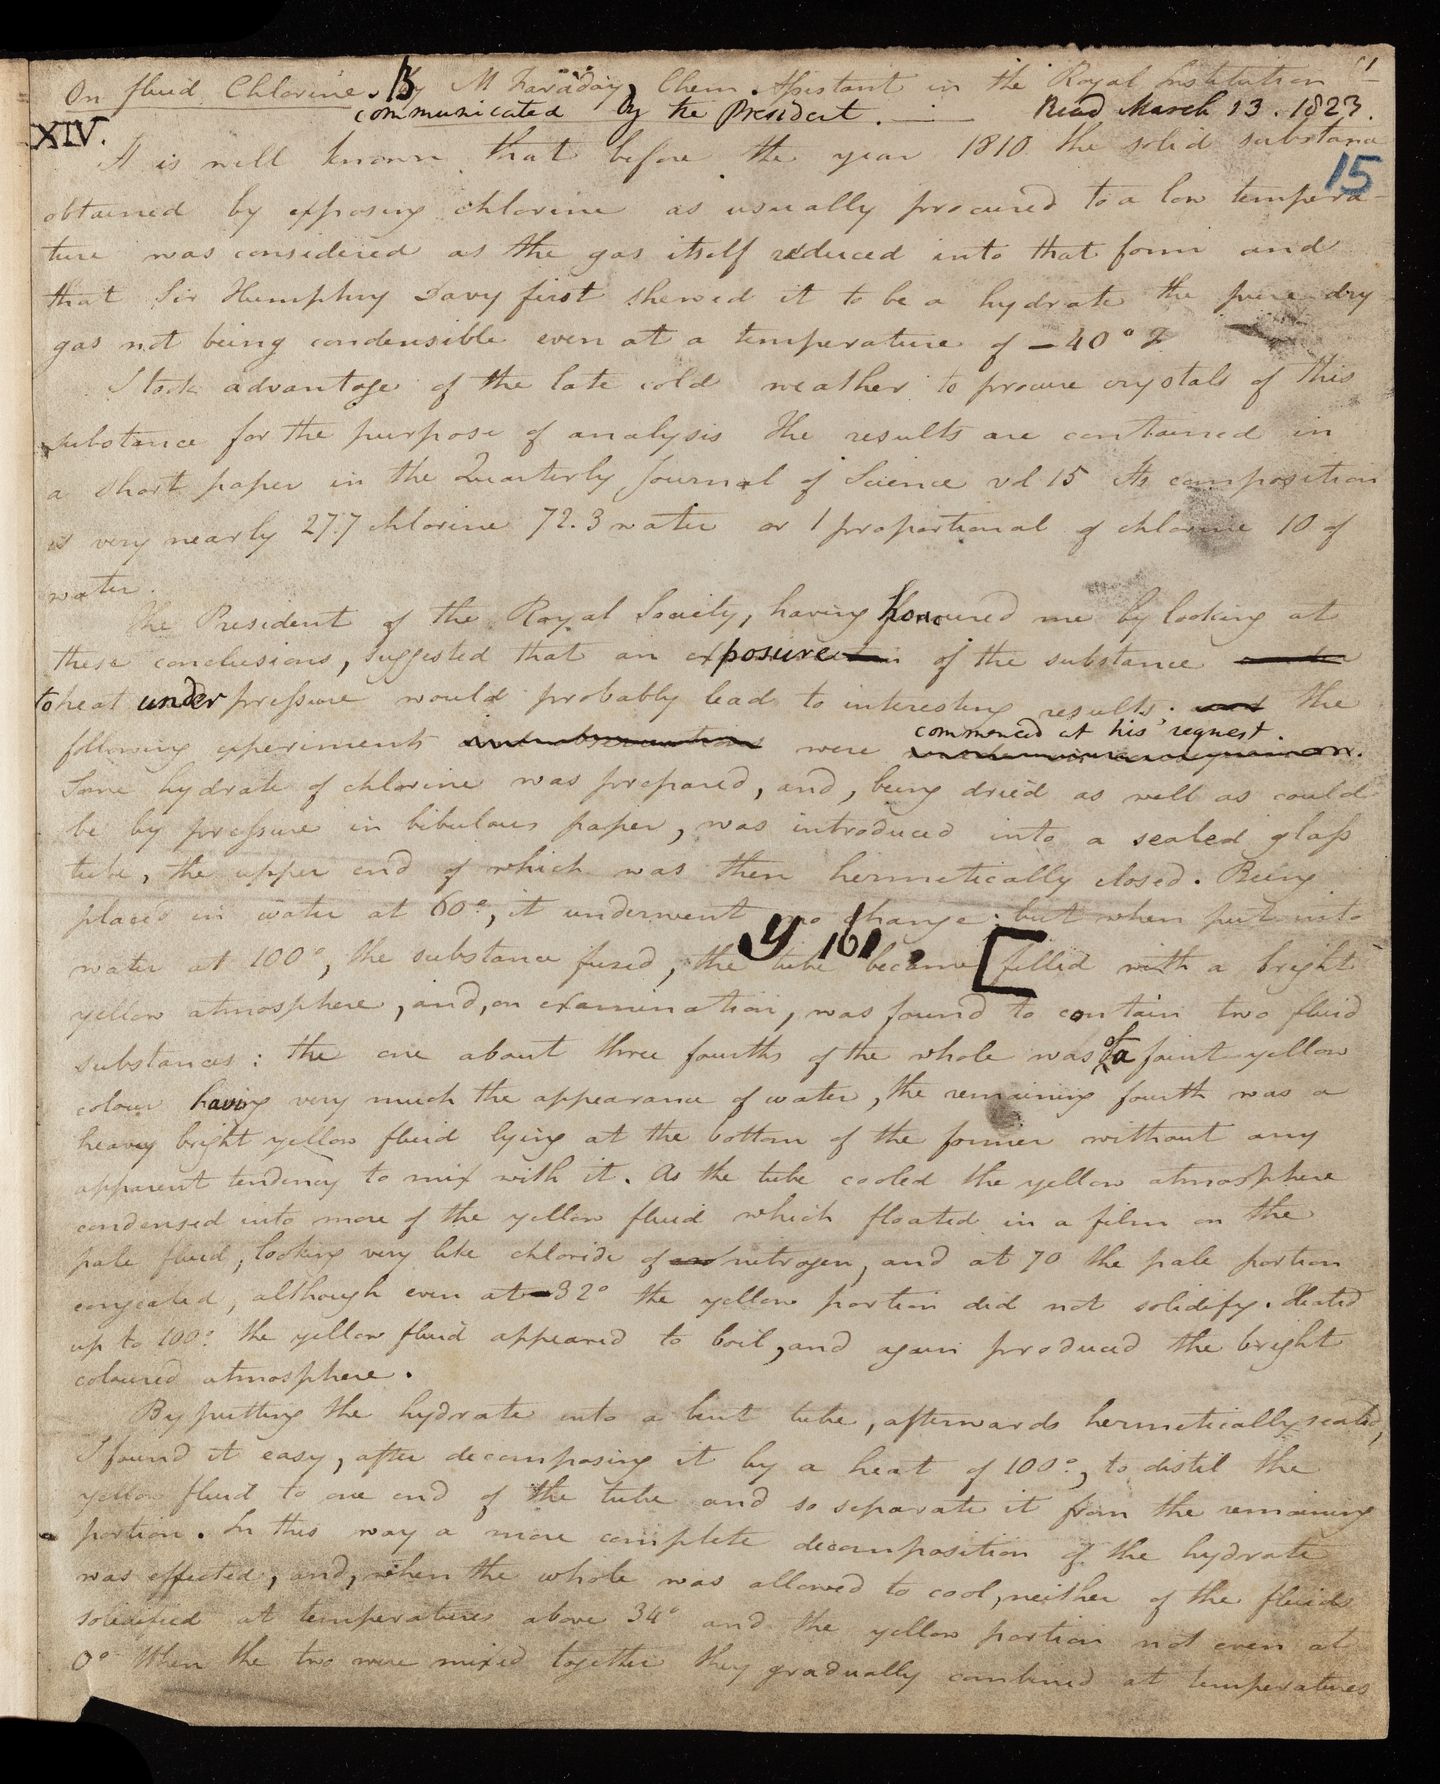 On fluid Chlorine. By M Faraday, Chem. Assistant in the Royal Institution
communicated by the President. Read March 13. 1823.
XIV.
It is well known that before the year 1810 the solid substance
15
obtained by exposing chlorine as usually procured to a low tempera-
ture was considered as the gas itself reduced into that form and
that Sir Humphry Davy first shewed it to be a hydrate the pure dry
gas not being condensible even at a temperature of -40° F
I took advantage of the late cold weather to procure crystals of this
substance for the purpose of analysis The results are contained in
a short paper in the Quarterly Journal of Science vol 15 Its composition
is very nearly 27.7 chlorine 72.3 water or 1 proportional of chlorine 10 of
water.
The President of the Royal Society, having honoured me by looking at
these conclusions, suggested that an exposure of the substance
to heat under pressure would probably lead to interesting results. and the
commenced at his request.
following experiments and observations were
Some hydrate of chlorine was prepared, and, being dried as well as could
be by pressure in bibulous paper, was introduced into a sealed glass
tube, the upper end of which was then hermetically closed. Being
placed in water at 60°, it underwent no change; but when put into
y 161
water at 100°, the substance fused, the tube became [filled with a bright
yellow atmosphere, and, on examination, was found to contain two fluid
substances: the one about three fourths of the whole was of a faint yellow
colour having very much the appearance of water, the remaining fourth was a
heavy bright yellow fluid lying at the bottom of the former without any
apparent tendency to mix with it. As the tube cooled the yellow atmosphere
condensed into more of the yellow fluid which floated in a film on the
pale fluid, looking very like chloride of nitrogen, and at 70 the pale portion
congealed, although even at 32° the yellow portion did not solidify. Heated
up to 100° the yellow fluid appeared to boil, and again produced the bright
coloured atmosphere.
By putting the hydrate into a bent tube, afterwards hermetically sealed,
I found it easy, after decomposing it by a heat of 100°, to distil the
yellow fluid to one end of the tube and so separate it from the remaining
portion. In this way a more complete decomposition of the hydrate
was effected, and, when the whole was allowed to cool, neither of the fluids
solidified at temperatures above 34° and the yellow portion not even at
0° When the two were mixed together they gradually combined at temperatures